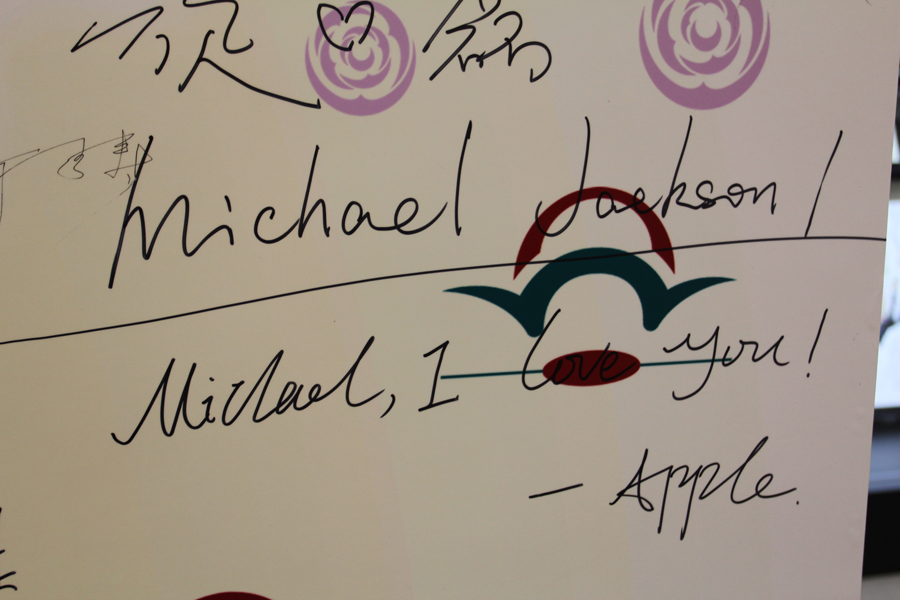 Michael Jackson!
Michael, I love you!
— Apple.